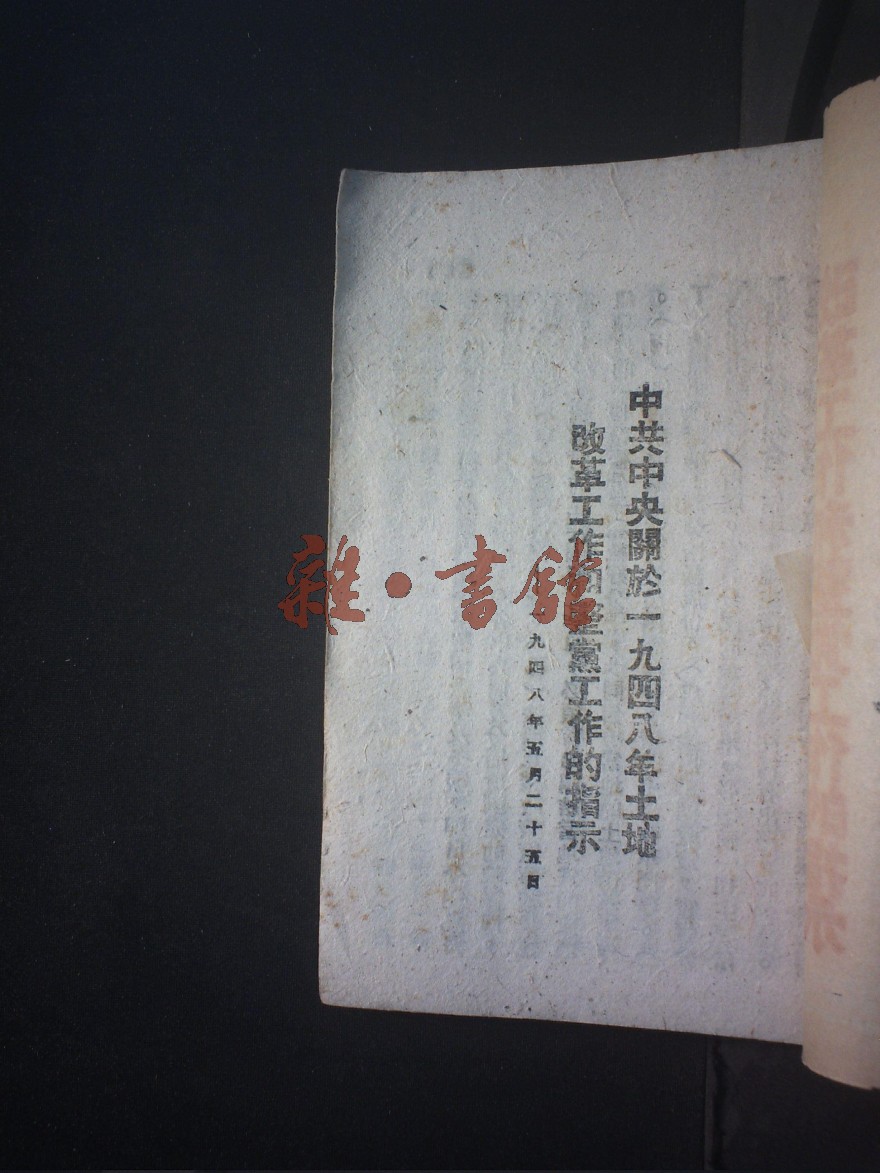 中共中央關於一九四八年土地
改革工作和整黨工作的指示
九四八年五月二十五日
雜·書館